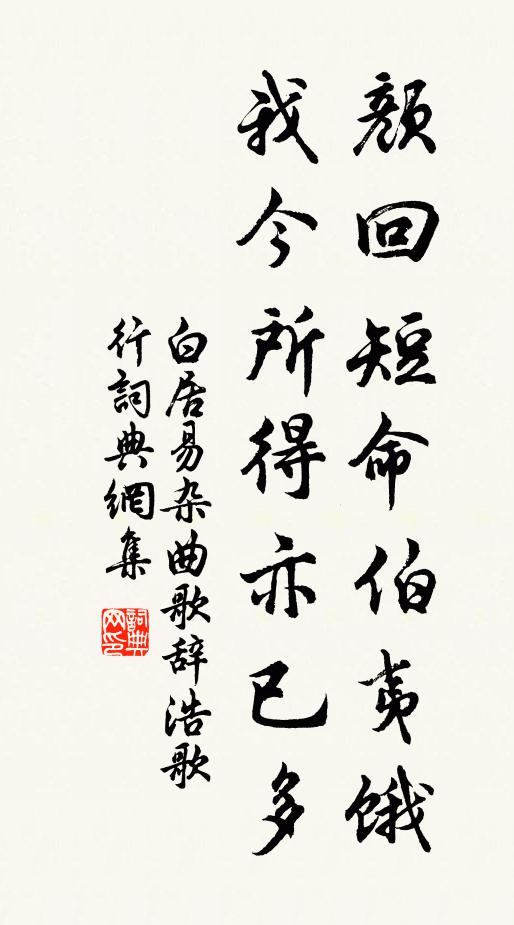 顏回短命伯夷餓
我今所得亦已多
白居易杂曲歌辞浩歌
行詞典網集
詞典网印